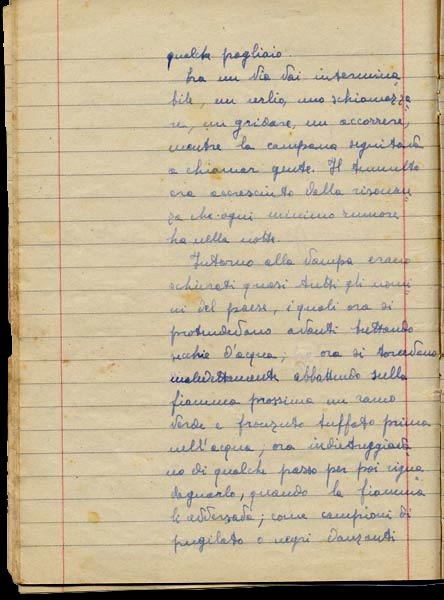 qualche pagliaio.
Era un via vai intermina
bile, un urlio, uno schiamazza
re, un gridare, un accorrere,
mentre la campana seguitava
a chiamar gente. Il tumulto
era accresciuto dalla risonan
za che ogni minimo rumore
ha nella notte.
Intorno alla vampa erano
schierati quasi tutti gli uomi
ni del paese, i quali ora si
protendevano avanti buttando
secchie d'acqua; ora si torcevano
maledettamente abbattendo sulla
fiamma prossima un ramo
verde e fronzuto tuffato prima
nell'acqua; ora indietreggiava
no di qualche passo per poi rigua
dagnarlo, quando la fiamma
li avversava; come campioni di
pugilato o negri danzanti